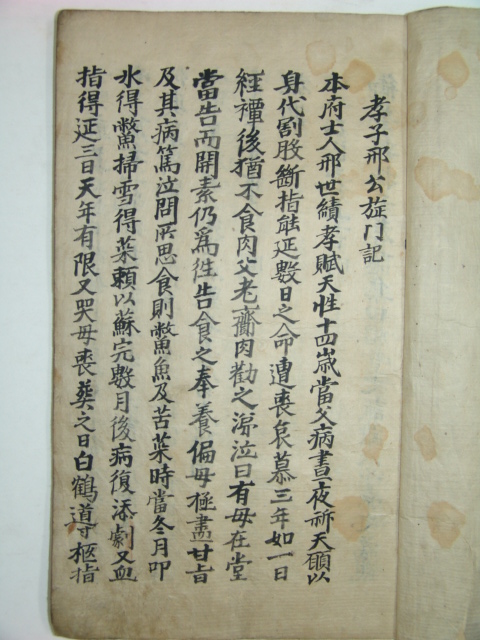 孝子邢公旌门記
本府士人邢世績孝賦天性十四歲當父病晝夜祈天願以
身代割股斷指能延數日之命遭喪哀慕三年如一日
經禫後猶不食肉父老齎肉勸之涕泣曰有母在堂
當告而開素仍爲徃告食之奉養偏母極盡甘旨
及其病篤泣問所思食則鱉魚及苦菜時當冬月叩
氷得鱉掃雪得菜頼以蘇完數月後病復添劇又血
指得延三日天年有限又哭母喪葬之日白鶴導柩指